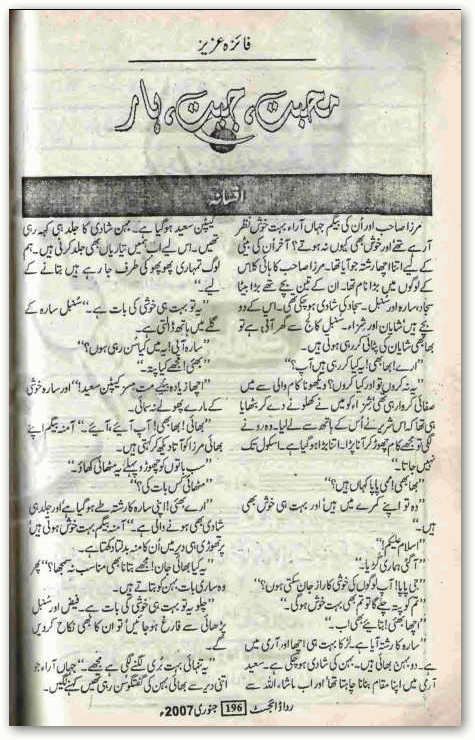 فائزہ عزیز
محبت، جیت، ہار
افسانہ
مرزا صاحب اور اُن کی بیگم جہاں آراء بہت خوش نظر
آ رہے تھے اور خوش بھی کیوں نہ ہوتے؟ آخر اُن کی بیٹی
کے لیے اتنا اچھا رشتہ جو آیا تھا۔ مرزا صاحب کا ہائی کلاس
کے لوگوں میں بڑا نام تھا۔ ان کے تین بچے تھے بڑا بیٹا
سجاد، سارہ اور سُنبل۔ سجاد کی شادی ہو چکی تھی۔ اس کے دو
بچے ہیں شایان اور شزاء۔ سنبل کالج سے گھر آئی ہے تو
بھابھی شایان کی پٹائی کر رہی ہوتی ہیں۔
”ارے! بھابھی! یہ کیا کر رہی ہیں آپ؟“
”یہ نہ کروں تو اور کیا کروں؟ دیکھو نا کام والی سے میں
صفائی کروا رہی تھی شزاء کو میں نے کھلونے دے کر بٹھایا
ہی تھا کہ اس شریر نے اُس کے ہاتھ سے لے لیا۔ وہ رونے
لگی تو مجھے کام چھوڑ کر آنا پڑا۔ اتنا بڑا ہو گیا ہے۔ اسکول تک
نہیں جاتا۔“
”بھابھی! ممی پاپا کہاں ہیں؟“
”وہ تو اپنے کمرے میں ہیں اور بہت ہی خوش بھی
ہیں۔“
”السلام علیکم!“
”آ گئی ہماری گڑیا۔“
”جی پاپا! آپ لوگوں کی خوشی کا راز جان سکتی ہوں؟“
”تم کو پتہ چلے گا تو تم بھی بہت خوش ہو گی۔“
”اچھا! بتائیے بھی اب۔“
”سارہ کا رشتہ آیا ہے۔ لڑکا بہت ہی اچھا اور آرمی میں
ہے۔ دو بہن بھائی ہیں۔ بہن کی شادی ہو چکی ہے۔ سعید
آرمی میں اپنا مقام بنانا چاہتا تھا اور اب ماشاء اللہ سے
کیپٹن سعید ہو گیا ہے۔ بہن شادی کا جلد ہی کہہ رہی
تھیں۔ اس لیے اب ہمیں تیاریاں بھی جلد کرنی ہیں۔ ہم
لوگ تمہاری پھوپھو کی طرف جا رہے ہیں بتانے کے
لیے۔“
”یہ تو بہت ہی خوشی کی بات ہے۔“ سُنبل سارہ کے
گلے میں ہاتھ ڈالتی ہے۔
”سارہ آپی! یہ میں کیا سُن رہی ہوں؟“
”بھئی! مجھے کیا پتہ۔“
”اچھا زیادہ بنئے مت مسز کیپٹن سعید!“ اور سارہ خوشی
کے مارے پھولے نہ سمائی۔
”بھائی! بھابھی! آپ آئیے، آئیے۔“ آمنہ بیگم اپنے
بھائی مرزا کو آتا دیکھ کر کہتی ہیں۔
”سب باتوں کو چھوڑو پہلے یہ مٹھائی کھاؤ۔“
”مٹھائی کس بات کی؟“
”ارے بھئی! اپنی سارہ کا رشتہ طے ہو گیا ہے اور جلد ہی
شادی بھی ہونے والی ہے۔“ آمنہ بیگم بہت خوش ہوتی ہیں
پر تھوڑی ہی دیر میں اُن کا منہ بدلتا دکھتا ہے۔
”کیا بھائی جان! مجھے بتانا بھی مناسب نہ سمجھا؟“ پھر
وہ ساری بات بہن کو بتاتے ہیں۔
”چلو یہ تو بہت ہی خوشی کی بات ہے۔ فیض اور سُنبل
پڑھائی سے فارغ ہو جائیں تو ان کا بھی نکاح کر دیں
گے۔“
”یہ تنہائی بہت بُری لگنے لگی ہے مجھے۔“ جہاں آراء جو
اتنی دیر سے بھائی بہن کی گفتگو سن رہی تھیں کہنے لگیں۔
رداڈائجسٹ 196 جنوری 2007ء